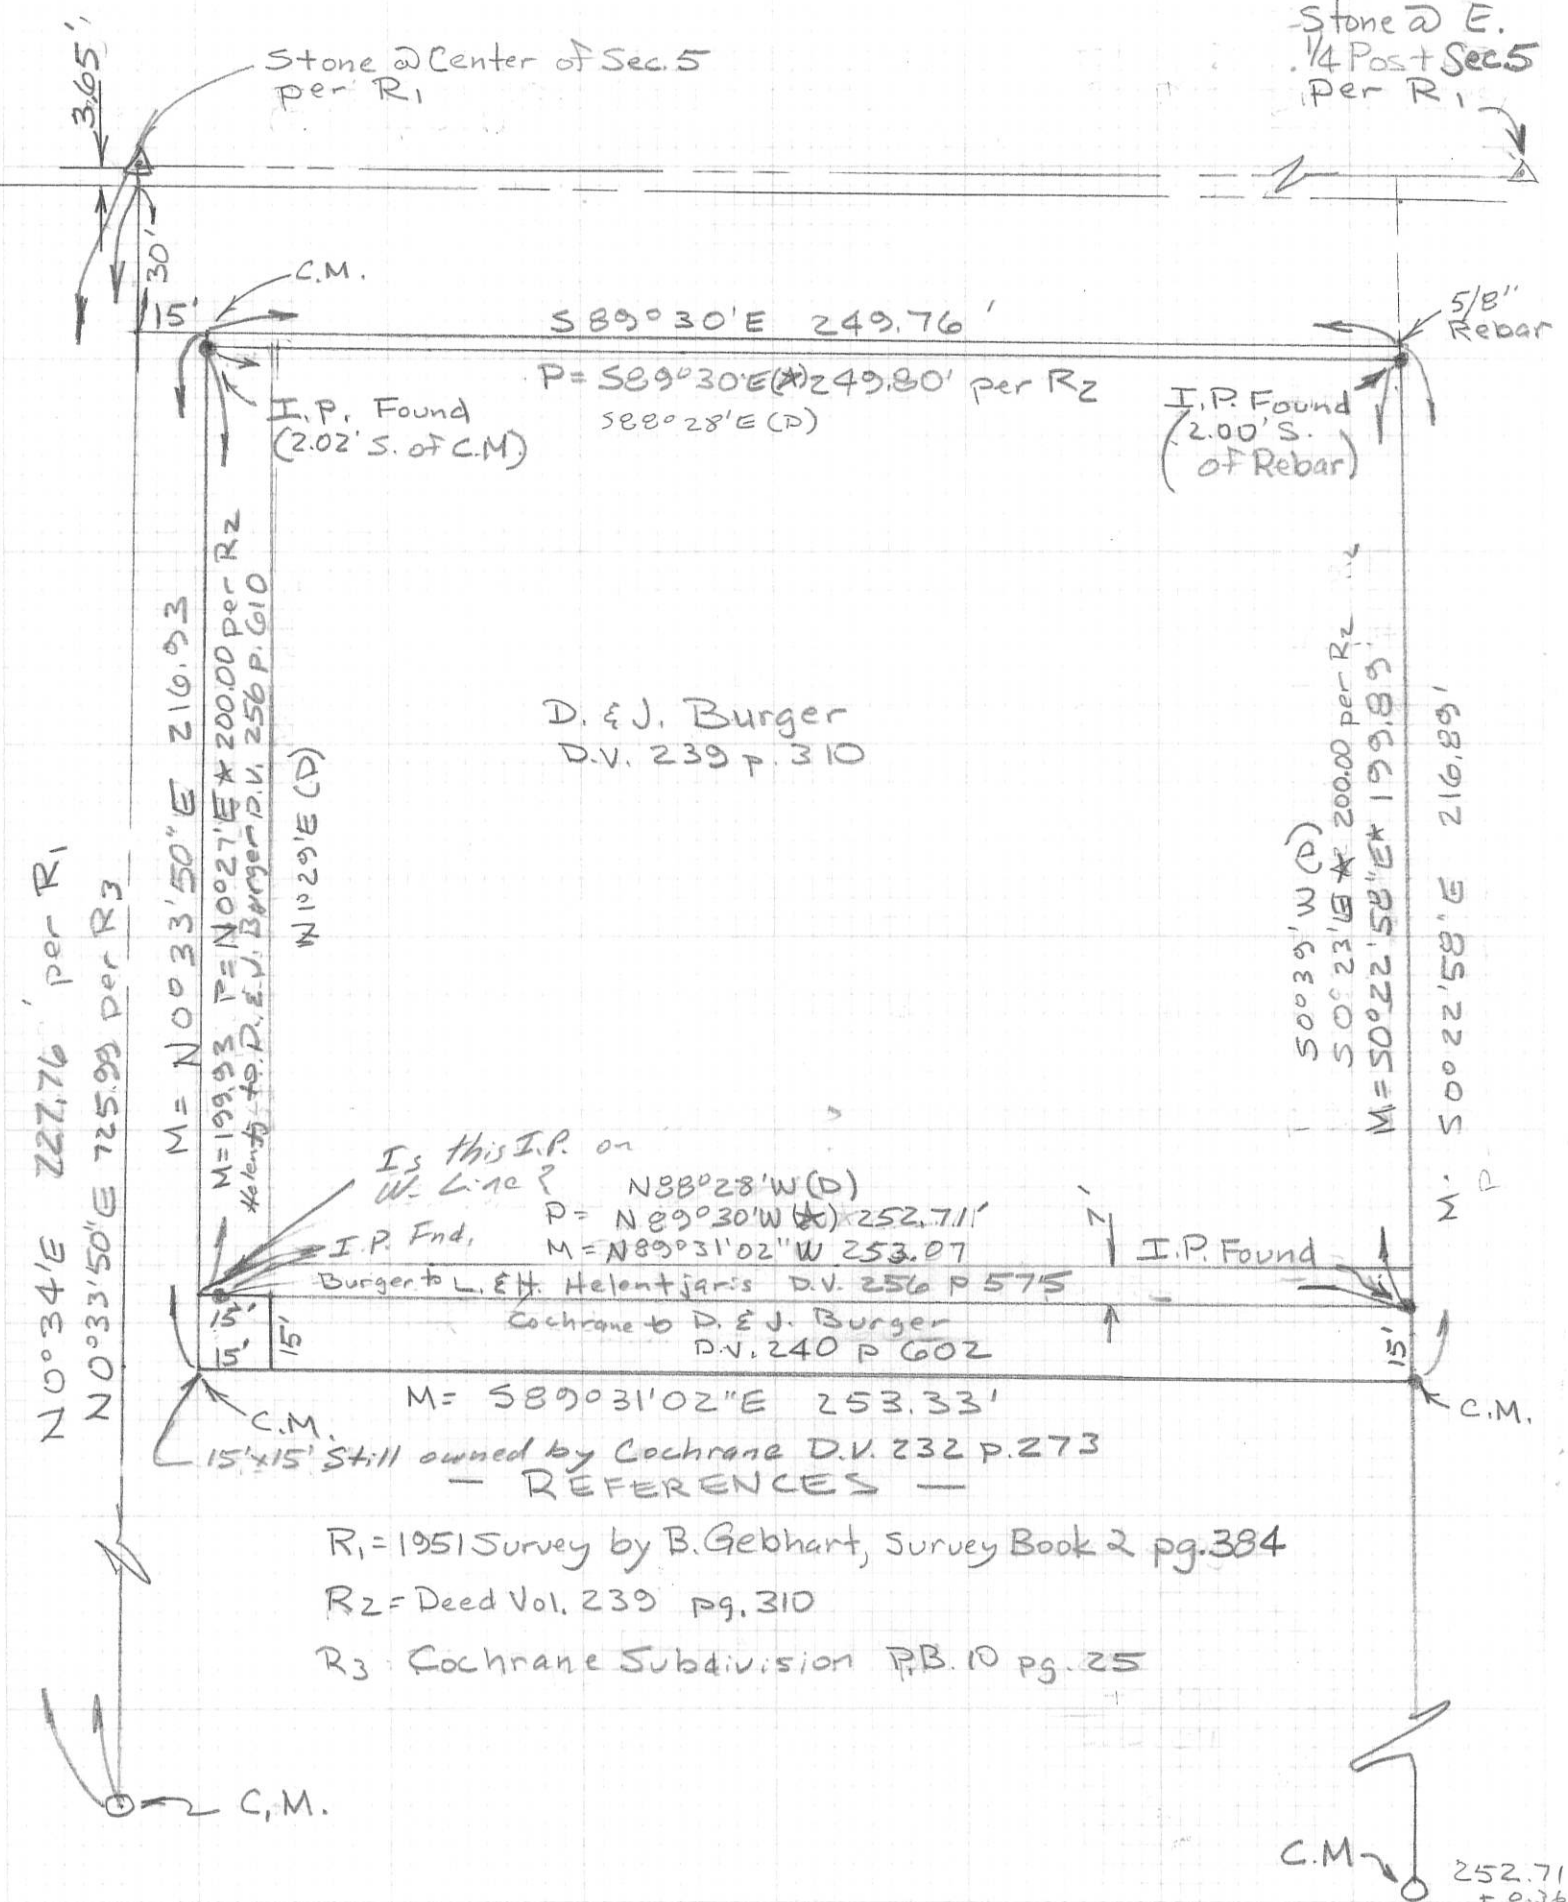 3.65'
Stone @ Center of Sec. 5
per R1
Stone @ E.
1/4 Post Sec. 5
Per R1
30'
15'
C.M.
S 89° 30' E 249.76'
P = S89°30'E (*) 249.80' per R2
S88°28'E (D)
5/8"
Rebar
I.P. Found
(2.02' S. of C.M)
I.P. Found
(2.00' S.
of Rebar)
N0°34'E 727.76' per R1
N0°33'50"E 725.99 per R3
M = N0°33'50"E 216.93
M=199.93 P=N0°27'E * 200.00 per R2
Helentj. to D. & J. Burger D.V. 256 p. 610
N1°29'E (D)
D. & J. Burger
D.V. 239 p. 310
S0°39'W (D)
S0°23'E * 200.00 per R2
M=S0°22'58"E * 199.89'
M. S0°22'58"E 216.89'
P
Is this I.P. on
W. Line?
I.P. Fnd.
N88°28'W (D)
P= N89°30'W (*) 252.71'
M = N89°31'02"W 253.07
7'
I.P. Found
Burger to L. & H. Helentjaris D.V. 256 p 575
Cochrane to D. & J. Burger
D.V. 240 p 602
15'
15'
15'
15'
M= S89°31'02"E 253.33'
C.M.
C.M.
15'x15' Still owned by Cochrane D.V. 232 p. 273
— REFERENCES —
R1 = 1951 Survey by B. Gebhart, Survey Book 2 pg. 384
R2 = Deed Vol. 239 pg. 310
R3 Cochrane Subdivision P.B. 10 pg. 25
C.M.
C.M
252.71